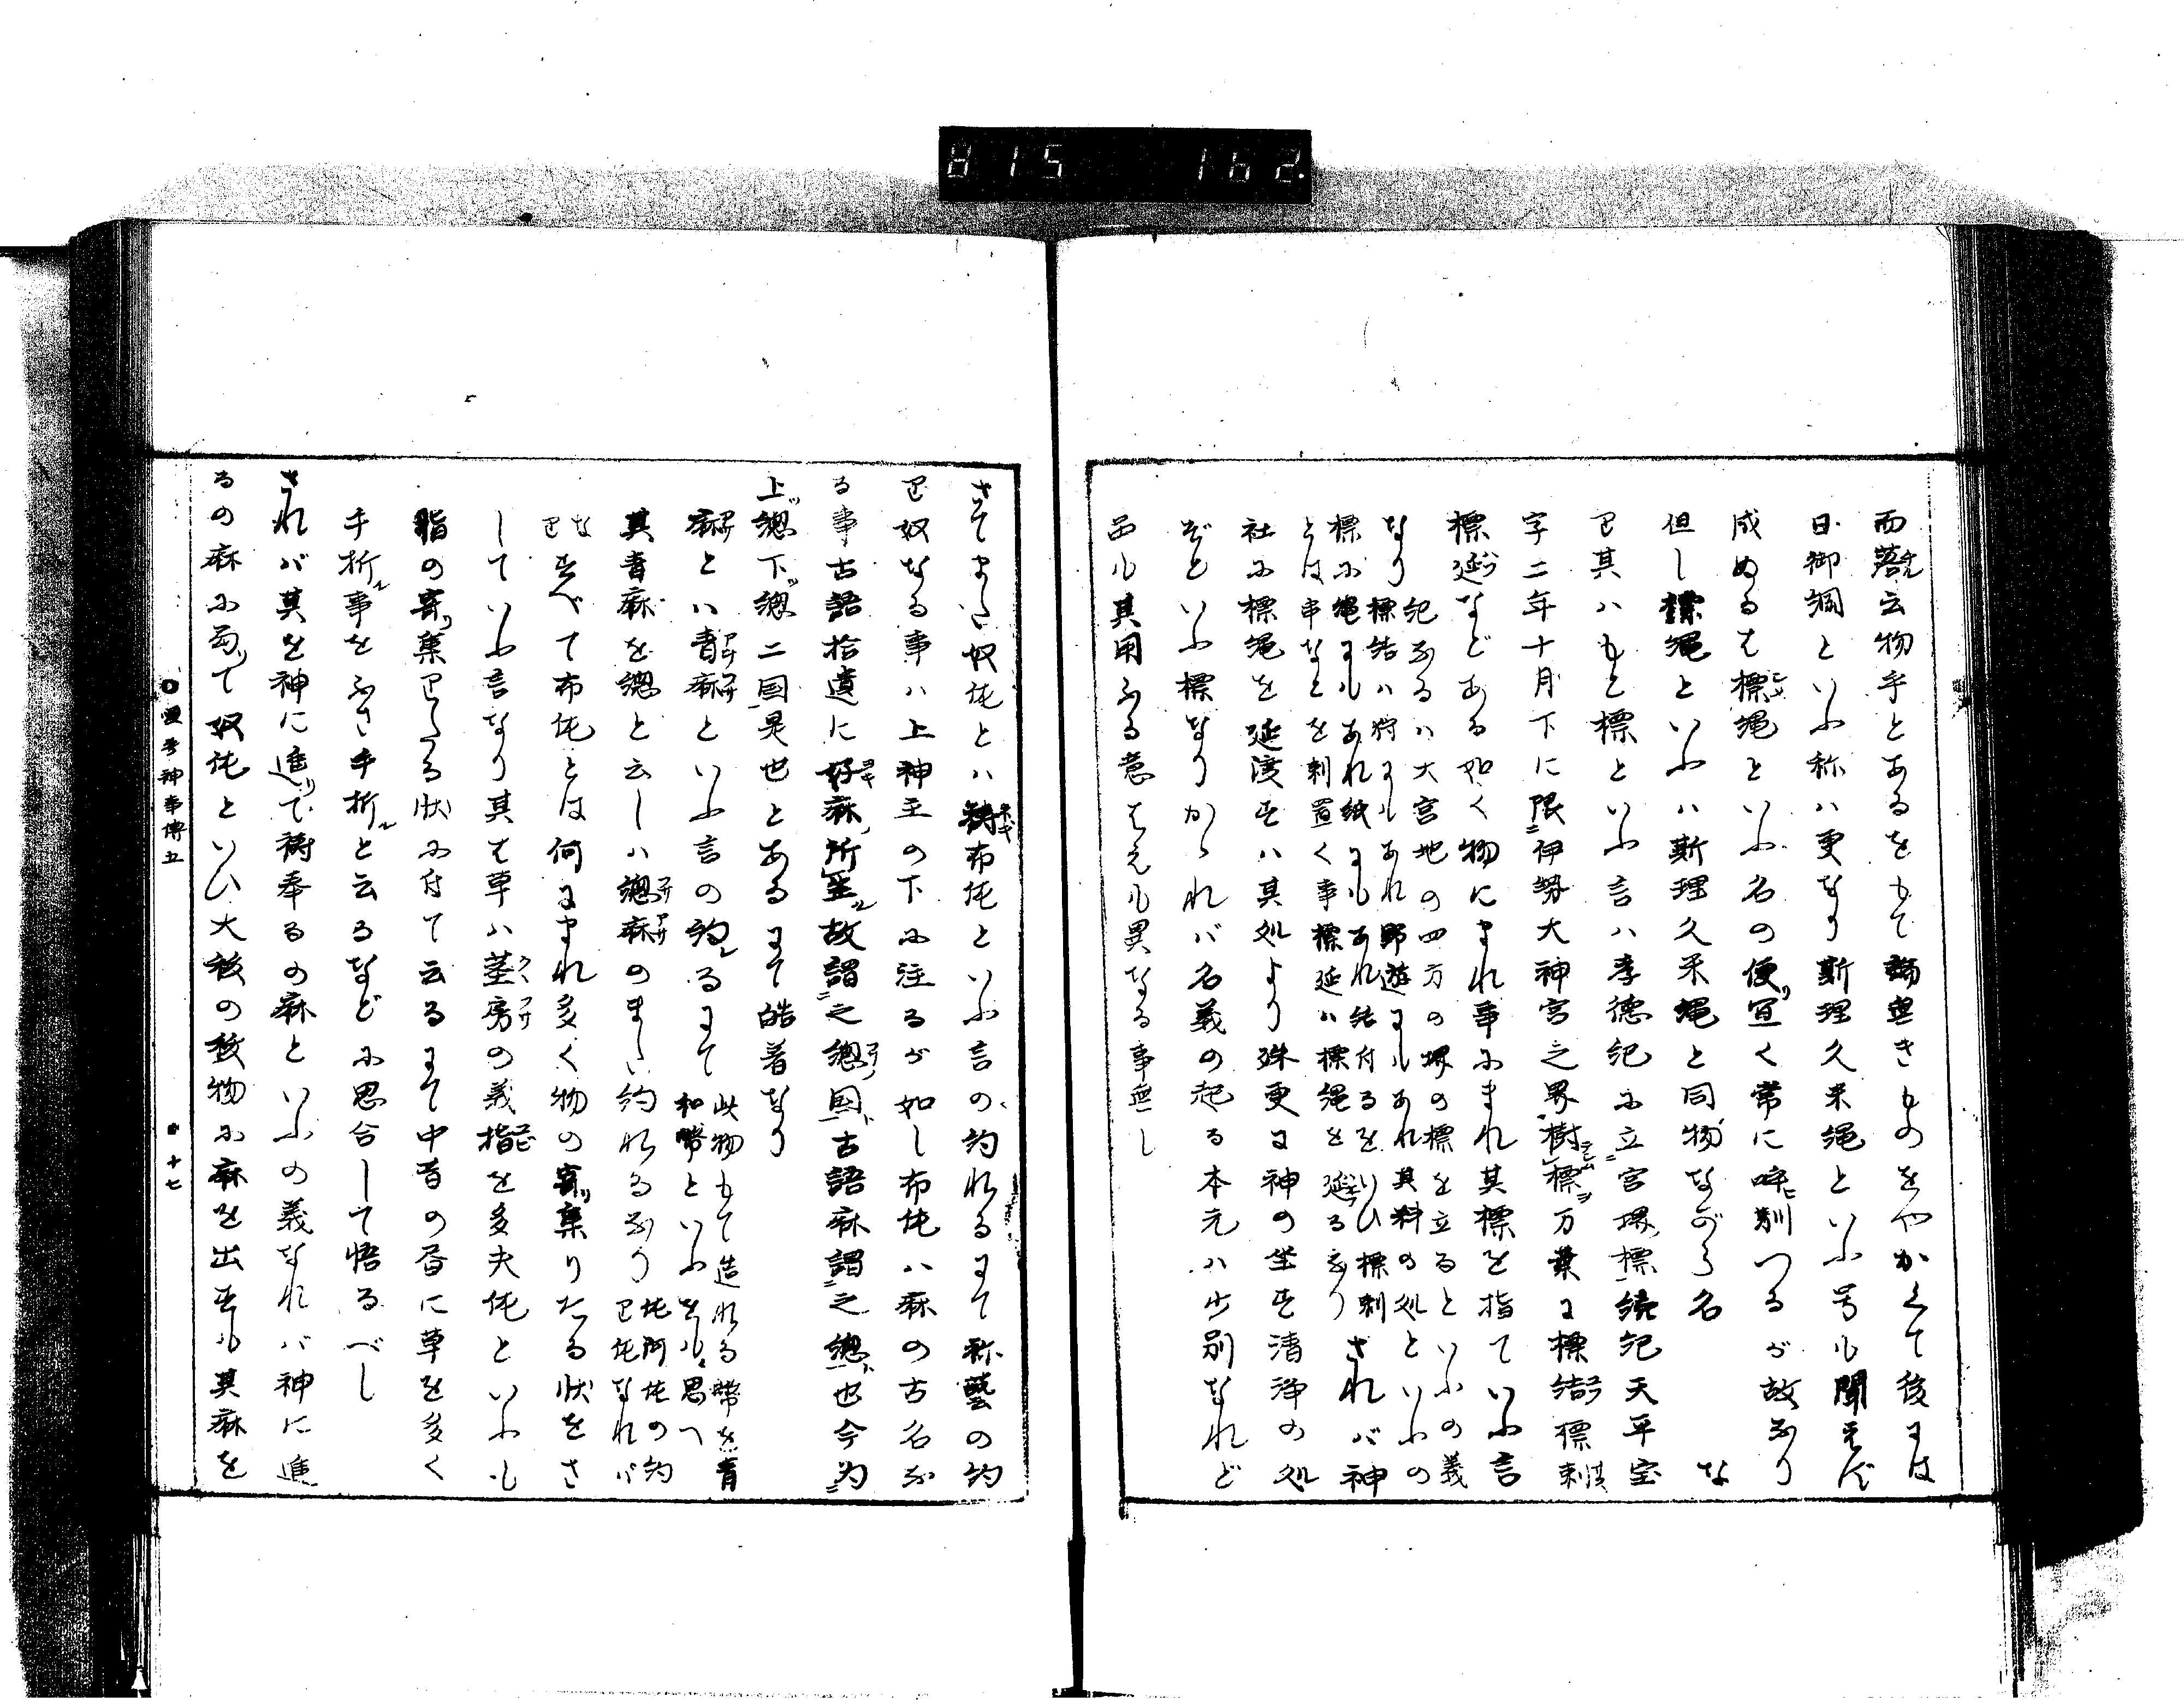 815 162
而落云物乎とあるをもて端無きものをやかくて後には
日御綱といふ称ハ更なり斯理久米縄といふ号も聞えず
成ぬるは標縄といふ名の便宜く常に呼馴つるが故なり
但し標縄といふハ斯理久米縄と同物ながら名
已其ハもと標といふ言ハ孝徳紀に立宮堺標続紀天平宝
字二年十月下に限伊勢大神宮之界樹標万葉に標結標刺
標延などある如く物にまれ事にまれ其標を指ていふ言
なり紀なるハ大宮地の四方の堺の標を立るといふの義
標結ハ狩にもあれ野遊にもあれ其料の処といふの
標に縄にもあれ紙にもあれ結付るをいひ標刺
とは串などを刺置く事標延ハ標縄を延るなりされバ神
社に標縄を延渡すハ其処より殊更に神の坐す清浄の処
ぞといふ標なりかゝれバ名義の起る本元ハ少別なれど
も其用ふる意はえも異なる事無し
さてまた奴佐とハ祷布佐といふ言の約れるにて祢藝の約
奴なる事ハ上神主の下に注るが如し布佐ハ麻の古名な
る事古語拾遺に好麻所生故謂之総国古語麻謂之総也今為
上総下総二国是也とあるにて皓著なり
麻とハ青麻といふ言の約るにて此物もて造れる幣を青
和幣といふをも思へ
其青麻を総と云しハ総麻のまた約れるなり
すべて布佐とは何にまれ多く物の寄集りたる状をさ
していふ言なり其は草ハ茎房の義指を多夫佐といふも
指の寄集りたる状に付て云るにて中昔の唇に草を多く
手折事をふさ手折と云るなどに思合して悟るべし
されバ其を神に進で祷奉るの麻といふの義なれバ神に進
るの麻に局て奴佐といひ大祓の祓物に麻を出すも其麻を
十七